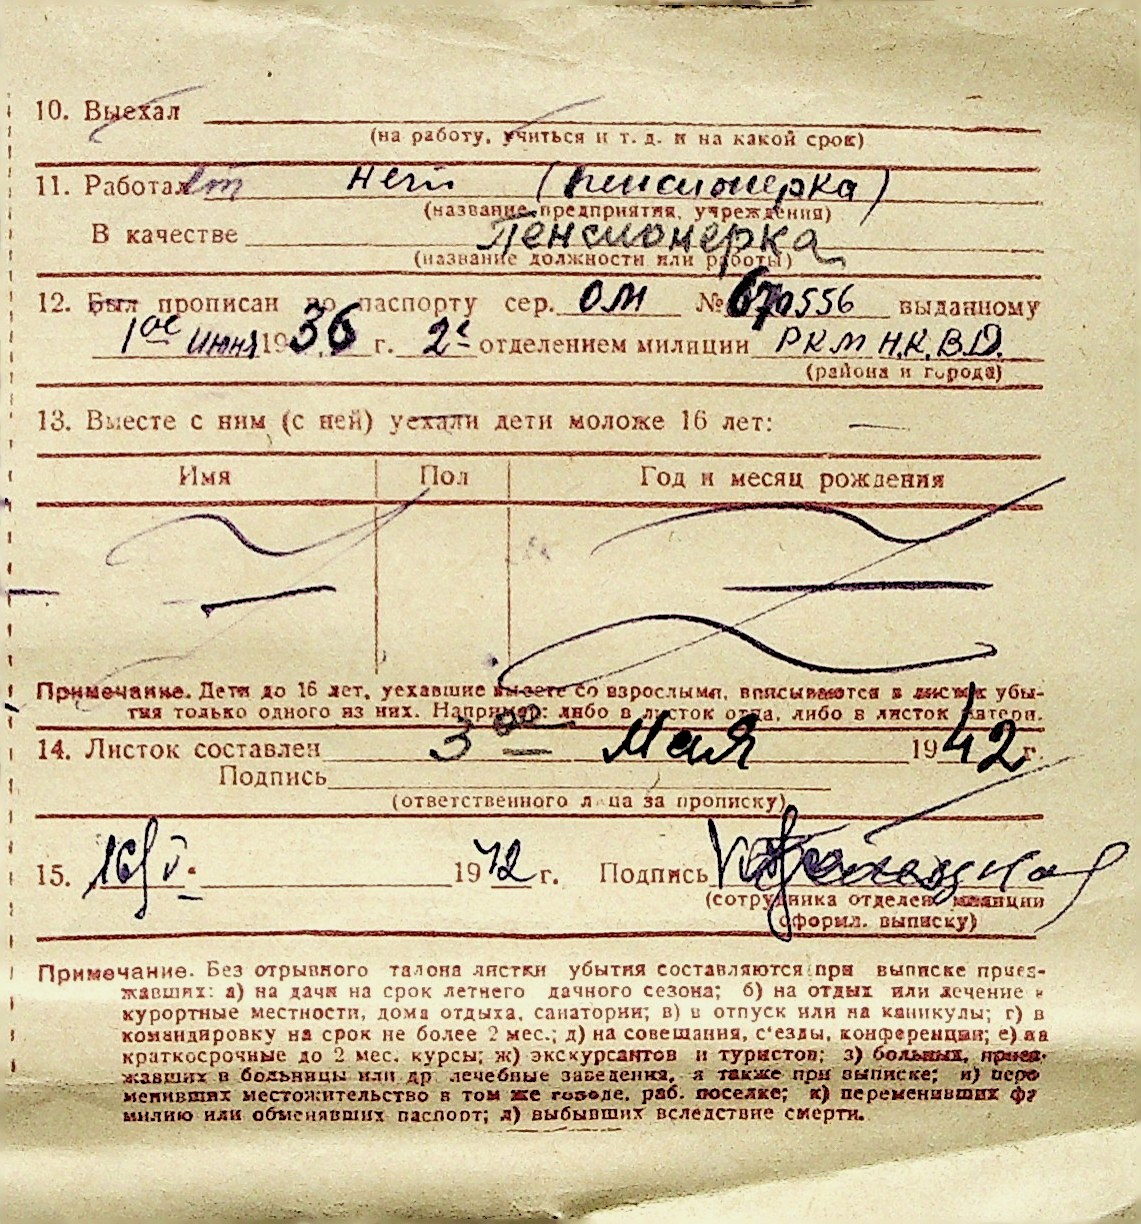 10. Выехал
(на работу, учиться и т. д. и на какой срок)
11. Работает нет (пенсионерка)
(название предприятия, учреждения)
В качестве Пенсионерка
(название должности или работы)
12. Был прописан по паспорту сер. ОМ № 670556 выданному
1ое июня 1936 г. 2е отделением милиции РКМ Н.К.В.Д.
(района и города)
13. Вместе с ним (с ней) уехали дети моложе 16 лет: —
Имя Пол Год и месяц рождения
Примечание. Дети до 16 лет, уехавшие вместе со взрослыми, вписываются в листок убы-
тия только одного из них. Например: либо в листок отца, либо в листок матери.
14. Листок составлен 3го Мая 1942 г.
Подпись
(ответственного лица за прописку)
15. 16/V. 1942 г. Подпись
(сотрудника отделен. милиции
оформл. выписку)
Примечание. Без отрывного талона листки убытия составляются при выписке приез-
жавших: а) на дачи на срок летнего дачного сезона; б) на отдых или лечение в
курортные местности, дома отдыха, санатории; в) в отпуск или на каникулы; г) в
командировку на срок не более 2 мес.; д) на совещания, с'езды, конференции; е) на
краткосрочные до 2 мес. курсы; ж) экскурсантов и туристов; з) больных, приез-
жавших в больницы или др. лечебные заведения, а также при выписке; и) пере
менивших местожительство в том же городе, раб. поселке; к) переменивших фа
милию или обменявших паспорт; л) выбывших вследствие смерти.